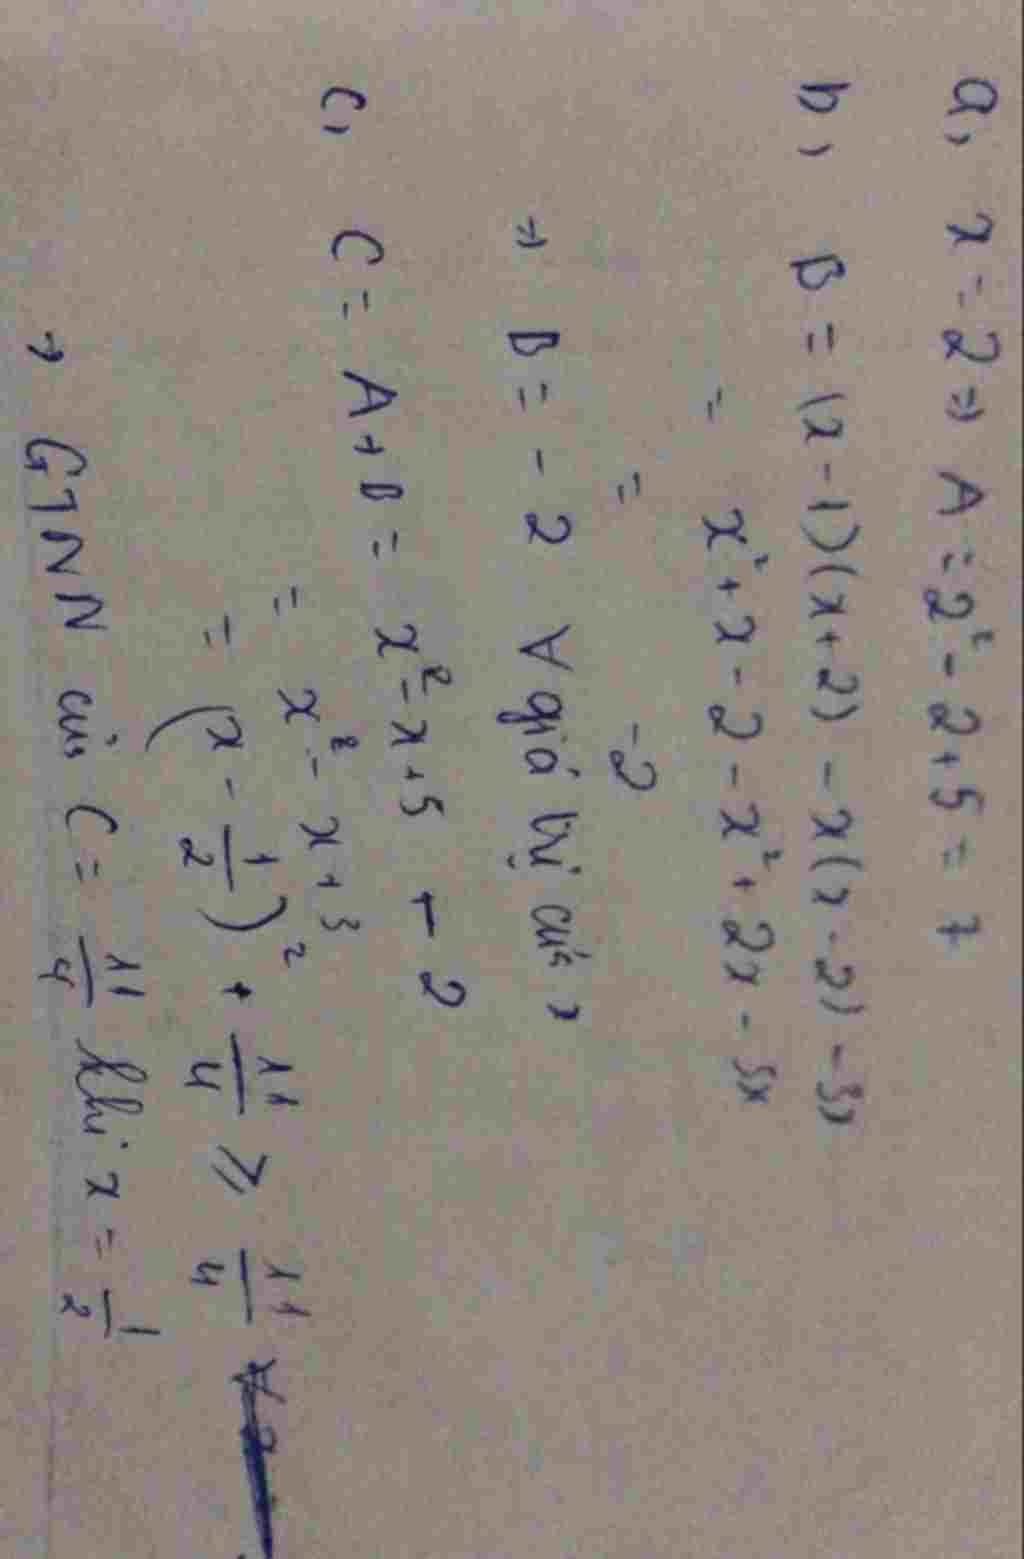 a, x = 2 => A = 2² - 2 + 5 = 7
b, B = (x - 1)(x + 2) - x(x - 2) - 3x
= x² + x - 2 - x² + 2x - 3x
= -2
=> B = - 2 ∀ giá trị của x
C, C = A + B = x² - x + 5 - 2
= x² - x + 3
= (x - 1/2)² + 11/4 ≥ 11/4
→ GTNN của C = 11/4 khi x = 1/2